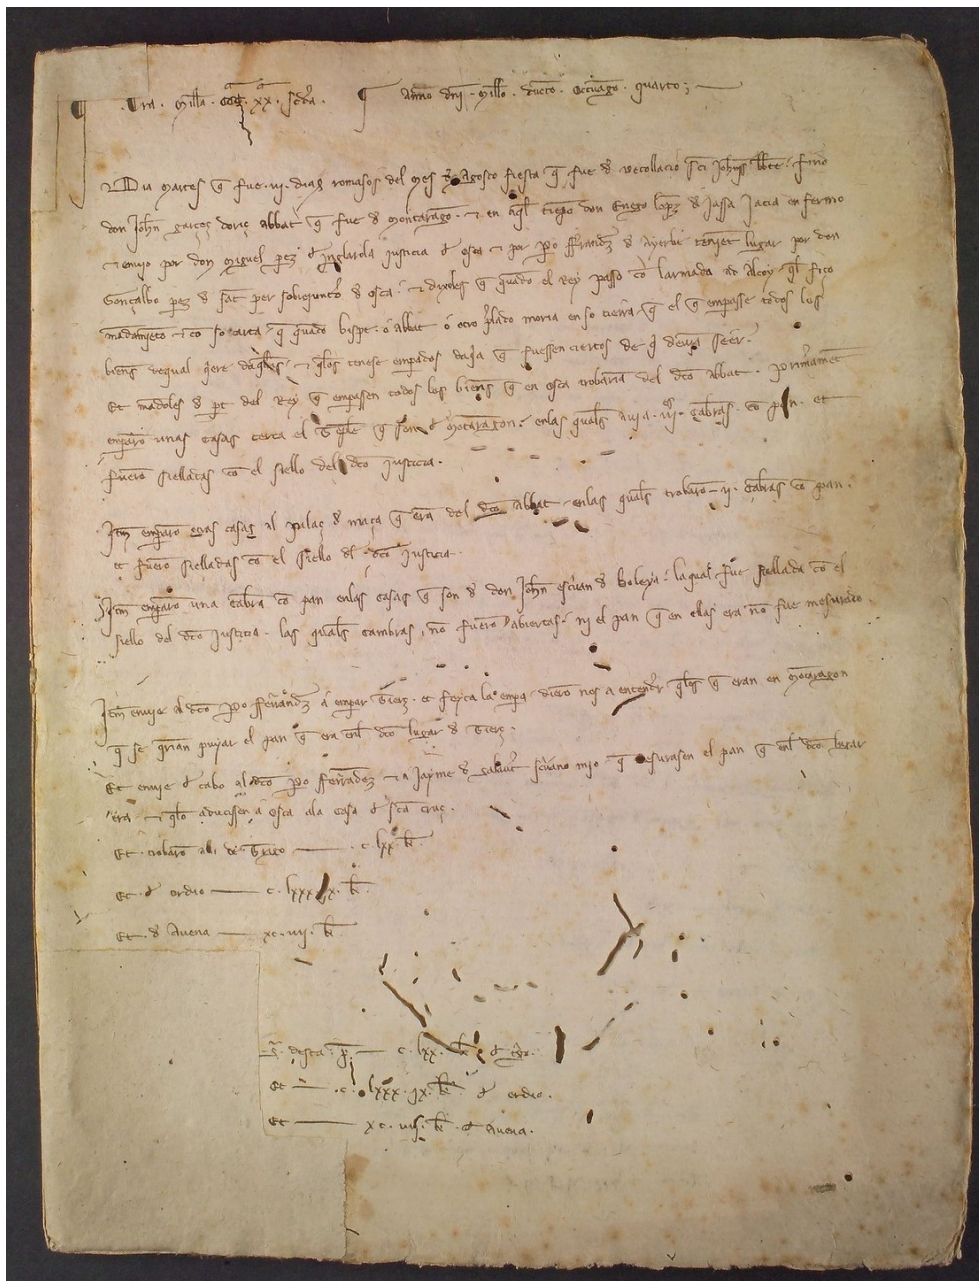 ¶ Era Milla CCCa xxa scda. ¶ Anno dni Millo ducto Octuago quarto;
Dia Martes q fue iij dias romasos del Mes d Agosto fiesta q fue d decollacio sci Johns bbte fino
don Johñ garceç doriç abbat q fue d Montarago. et en aql tiepo don Enego lopez d jassa jacia en fermo
et envio por don Miguel perez justicia d osca et por Po fferrandez d Ayerbe tenient lugar por don
Gonçalbo perez sobrejuntero d osca. et dixoles q quado el Rey passo co larmada ad Alcoy ql fico
madamjeto co so carta q quado bispe o Abbat o otro plado moria en so tierra q el q empasse todos los
biens et qlos tenese empados q fuessen ciertos de q devia seer.
Et madoles d pt del Rey q empassen todos los biens q en osca trobaria del dco abbat. primamet
emparo unas casas cerca el teple q son d Motaragon. enlas quals avia iij cabras co pan. et
fuero siellatas co el siello del dco justicia.
Jtm emparo otras casas al palaç d maça q era del dco abbat enlas quals trobaro ij cabras co pan.
et fuero sielladas co el siello dl dco justicia.
Jtm emparo una cabra co pan enlas casas q son d don Johñ d boleya. laqual fue siellada co el
siello del dco justicia. las quals cambras no fuero abiertas. nj el pan q en ellas era no fue mesurado.
Jtm envie al dco Po fferrandez a empar tierz. et feyta la empa diero nos a entender qlos q eran en Motaragon
q se qrian puyar el pan q era enl dco lugar d tierz.
Et envie d cabo al dco Po fferradez et a Jayme d scivano mio q mesurasen el pan q enl dco lugar
era et qlo aducissen a osca ala casa d sca cruz.
Et trobaro ali de trigo c lxx k
Et d ordio c lxxx ix k
Et d Avena xc iij k
c lxx k d
Et c lxxx ix k d ordio.
Et xc iij k d Avena.